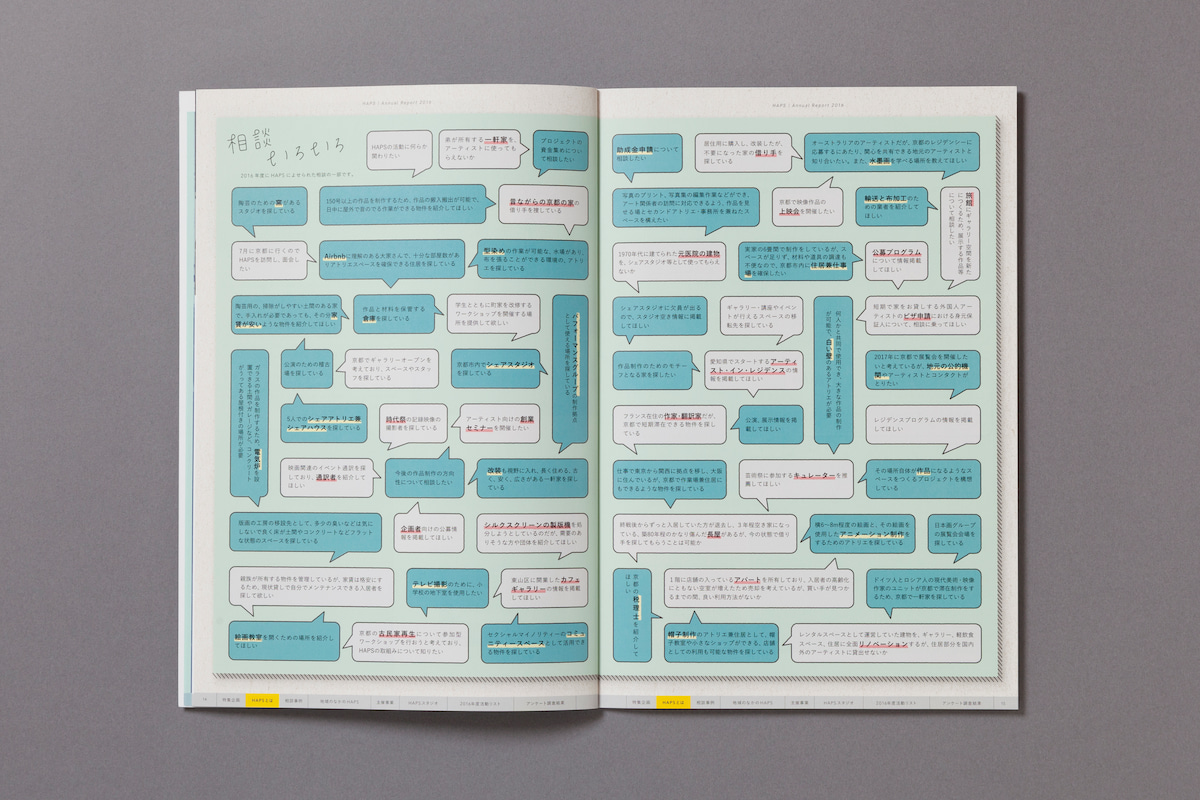 HAPS | Annual Report 2016
相談
いろいろ
2016年度にHAPSによせられた相談の一部です。
HAPSの活動に何らか
関わりたい
弟が所有する一軒家を、
アーティストに使っても
らえないか
プロジェクトの
資金集めについ
て相談したい
陶芸のための窯がある
スタジオを探している
150号以上の作品を制作するため、作品の搬入搬出が可能で、
日中に屋外で音のでる作業ができる物件を紹介してほしい
昔ながらの京都の家の
借り手を捜している
7月に京都に行くので
HAPSを訪問し、面会し
たい
Airbnbに理解のある大家さんで、十分な部屋数があ
りアトリエスペースを確保できる住居を探している
型染めの作業が可能な、水場があり、
布を張ることができる環境の、アトリ
エを探している
陶芸用の、掃除がしやすい土間のある家
で、手入れが必要であっても、その分家
賃が安いような物件を紹介してほしい
作品と材料を保管する
倉庫を探している
学生とともに町家を改修する
ワークショップを開催する場
所を提供して欲しい
パフォーマンスグループの制作拠点
として使える場所を探している
ガラスの作品を制作するため、電気炉を設
置できる土間やガレージなど、コンクリート
がうってある屋根付きの場所が必要
公演のための稽古
場を探している
京都でギャラリーオープンを
考えており、スペースやスタッ
フを探している
京都市内でシェアスタジオ
を探している
5人でのシェアアトリエ兼
シェアハウスを探している
時代祭の記録映像の
撮影者を探している
アーティスト向けの創業
セミナーを開催したい
映画関連のイベント通訳を探
しており、通訳者を紹介して
ほしい
今後の作品制作の方向
性について相談したい
改装も視野に入れ、長く住める、古
く、安く、広さがある一軒家を探し
ている
版画の工房の移設先として、多少の臭いなどは気に
しないで良く床が土間やコンクリートなどフラット
な状態のスペースを探している
企画者向けの公募情
報を掲載してほしい
シルクスクリーンの製版機を処
分しようとしているのだが、需要のあ
りそうな方や団体を紹介してほしい
親族が所有する物件を管理しているが、家賃は格安にす
るため、現状貸しで自分でメンテナンスできる入居者を
探して欲しい
テレビ撮影のために、小
学校の地下室を使用したい
東山区に開業したカフェ
ギャラリーの情報を掲載
してほしい
絵画教室を開くための場所を紹介し
てほしい
京都の古民家再生について参加型
ワークショップを行おうと考えており、
HAPSの取組みについて知りたい
セクシャルマイノリティーのコミュ
ニティースペースとして活用でき
る物件を探している
特集企画 HAPSとは 相談事例 地域のなかのHAPS 主催事業 HAPSスタジオ 2016年度活動リスト アンケート調査結果
HAPS | Annual Report 2016
助成金申請について
相談したい
居住用に購入し、改装したが、
不要になった家の借り手を
探している
オーストラリアのアーティストだが、京都のレジデンシーに
応募するにあたり、関心を共有できる地元のアーティストと
知り合いたい。また、水墨画を学べる場所を教えてほしい
写真のプリント、写真集の編集作業などができ、
アート関係者の訪問に対応できるよう、作品を見
せる場とセカンドアトリエ・事務所を兼ねたスペ
ースを構えたい
京都で映像作品の
上映会を開催したい
輸送と布加工のため
の業者を紹介して
ほしい
旅館にギャラリー空間を新た
につくるため、展示する作品等
について相談したい
1970年代に建てられた元医院の建物
を、シェアスタジオ等として使ってもらえ
ないか
実家の6畳間で制作をしているが、スペ
ースが足りず、材料や道具の調達も
不便なので、京都市内に住居兼仕事
場を確保したい
公募プログラム
について情報掲
載してほしい
シェアスタジオに欠員が出る
ので、スタジオ空き情報に掲載
してほしい
ギャラリー・講座やイベン
トが行えるスペースの移
転先を探している
何人かと共同で使用でき、大きな作品の制作
が可能で、白い壁のあるアトリエが必要
短期で家をお貸しする外国人アー
ティストのビザ申請における身元保
証人について、相談に乗ってほしい
作品制作のためのモチー
フとなる家を探したい
愛知県でスタートするアーティ
スト・イン・レジデンスの情
報を掲載してほしい
2017年に京都で展覧会を開催した
いと考えているが、地元の公的機
関やアーティストとコンタクトが
とりたい
フランス在住の作家・翻訳家だが、
京都で短期滞在できる物件を探して
いる
公演、展示情報を掲
載してほしい
レジデンスプログラムの情報を掲載
してほしい
仕事で東京から関西に拠点を移し、大阪
に住んでいるが、京都で作業場兼住居に
もできるような物件を探している
芸術祭に参加するキュレーターを推
薦してほしい
その場所自体が作品になるようなス
ペースをつくるプロジェクトを構想
している
終戦後からずっと入居していた方が退去し、3年程空き家になっ
ている、築80年程のかなり傷んだ長屋があるが、今の状態で借り
手を探してもらうことは可能か
横6〜8m程度の絵画と、その絵画を
使用したアニメーション制作を
するためのアトリエを探している
日本画グループ
の展覧会会場を
探している
京都の税理士を紹介して
ほしい
1階に店舗の入っているアパートを所有しており、入居者の高齢化
にともない空室が増えたため売却を考えているが、買い手が見つか
るまでの間、良い利用方法がないか
ドイツ人とロシア人の現代美術・映像
作家のユニットが京都で滞在制作をす
るため、京都で一軒家を探している
帽子制作のアトリエ兼住居として、帽
子教室や小さなショップができる、店舗
としての利用も可能な物件を探している
レンタルスペースとして運営していた建物を、ギャラリー、軽飲食
スペース、住居に全面リノベーションするが、住居部分を国内
外のアーティストに貸出せないか
特集企画 HAPSとは 相談事例 地域のなかのHAPS 主催事業 HAPSスタジオ 2016年度活動リスト アンケート調査結果